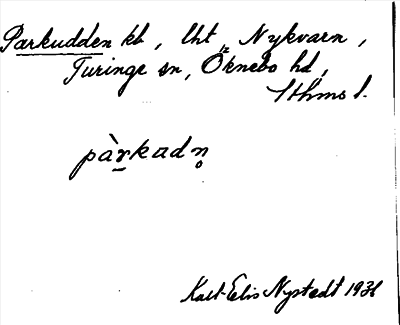 Parkudden kb, lht Nykvarn,
Turinge sn, Öknebo hd,
Sthms l.
pàrkadn̥
Karl-Elis Nystedt 1931